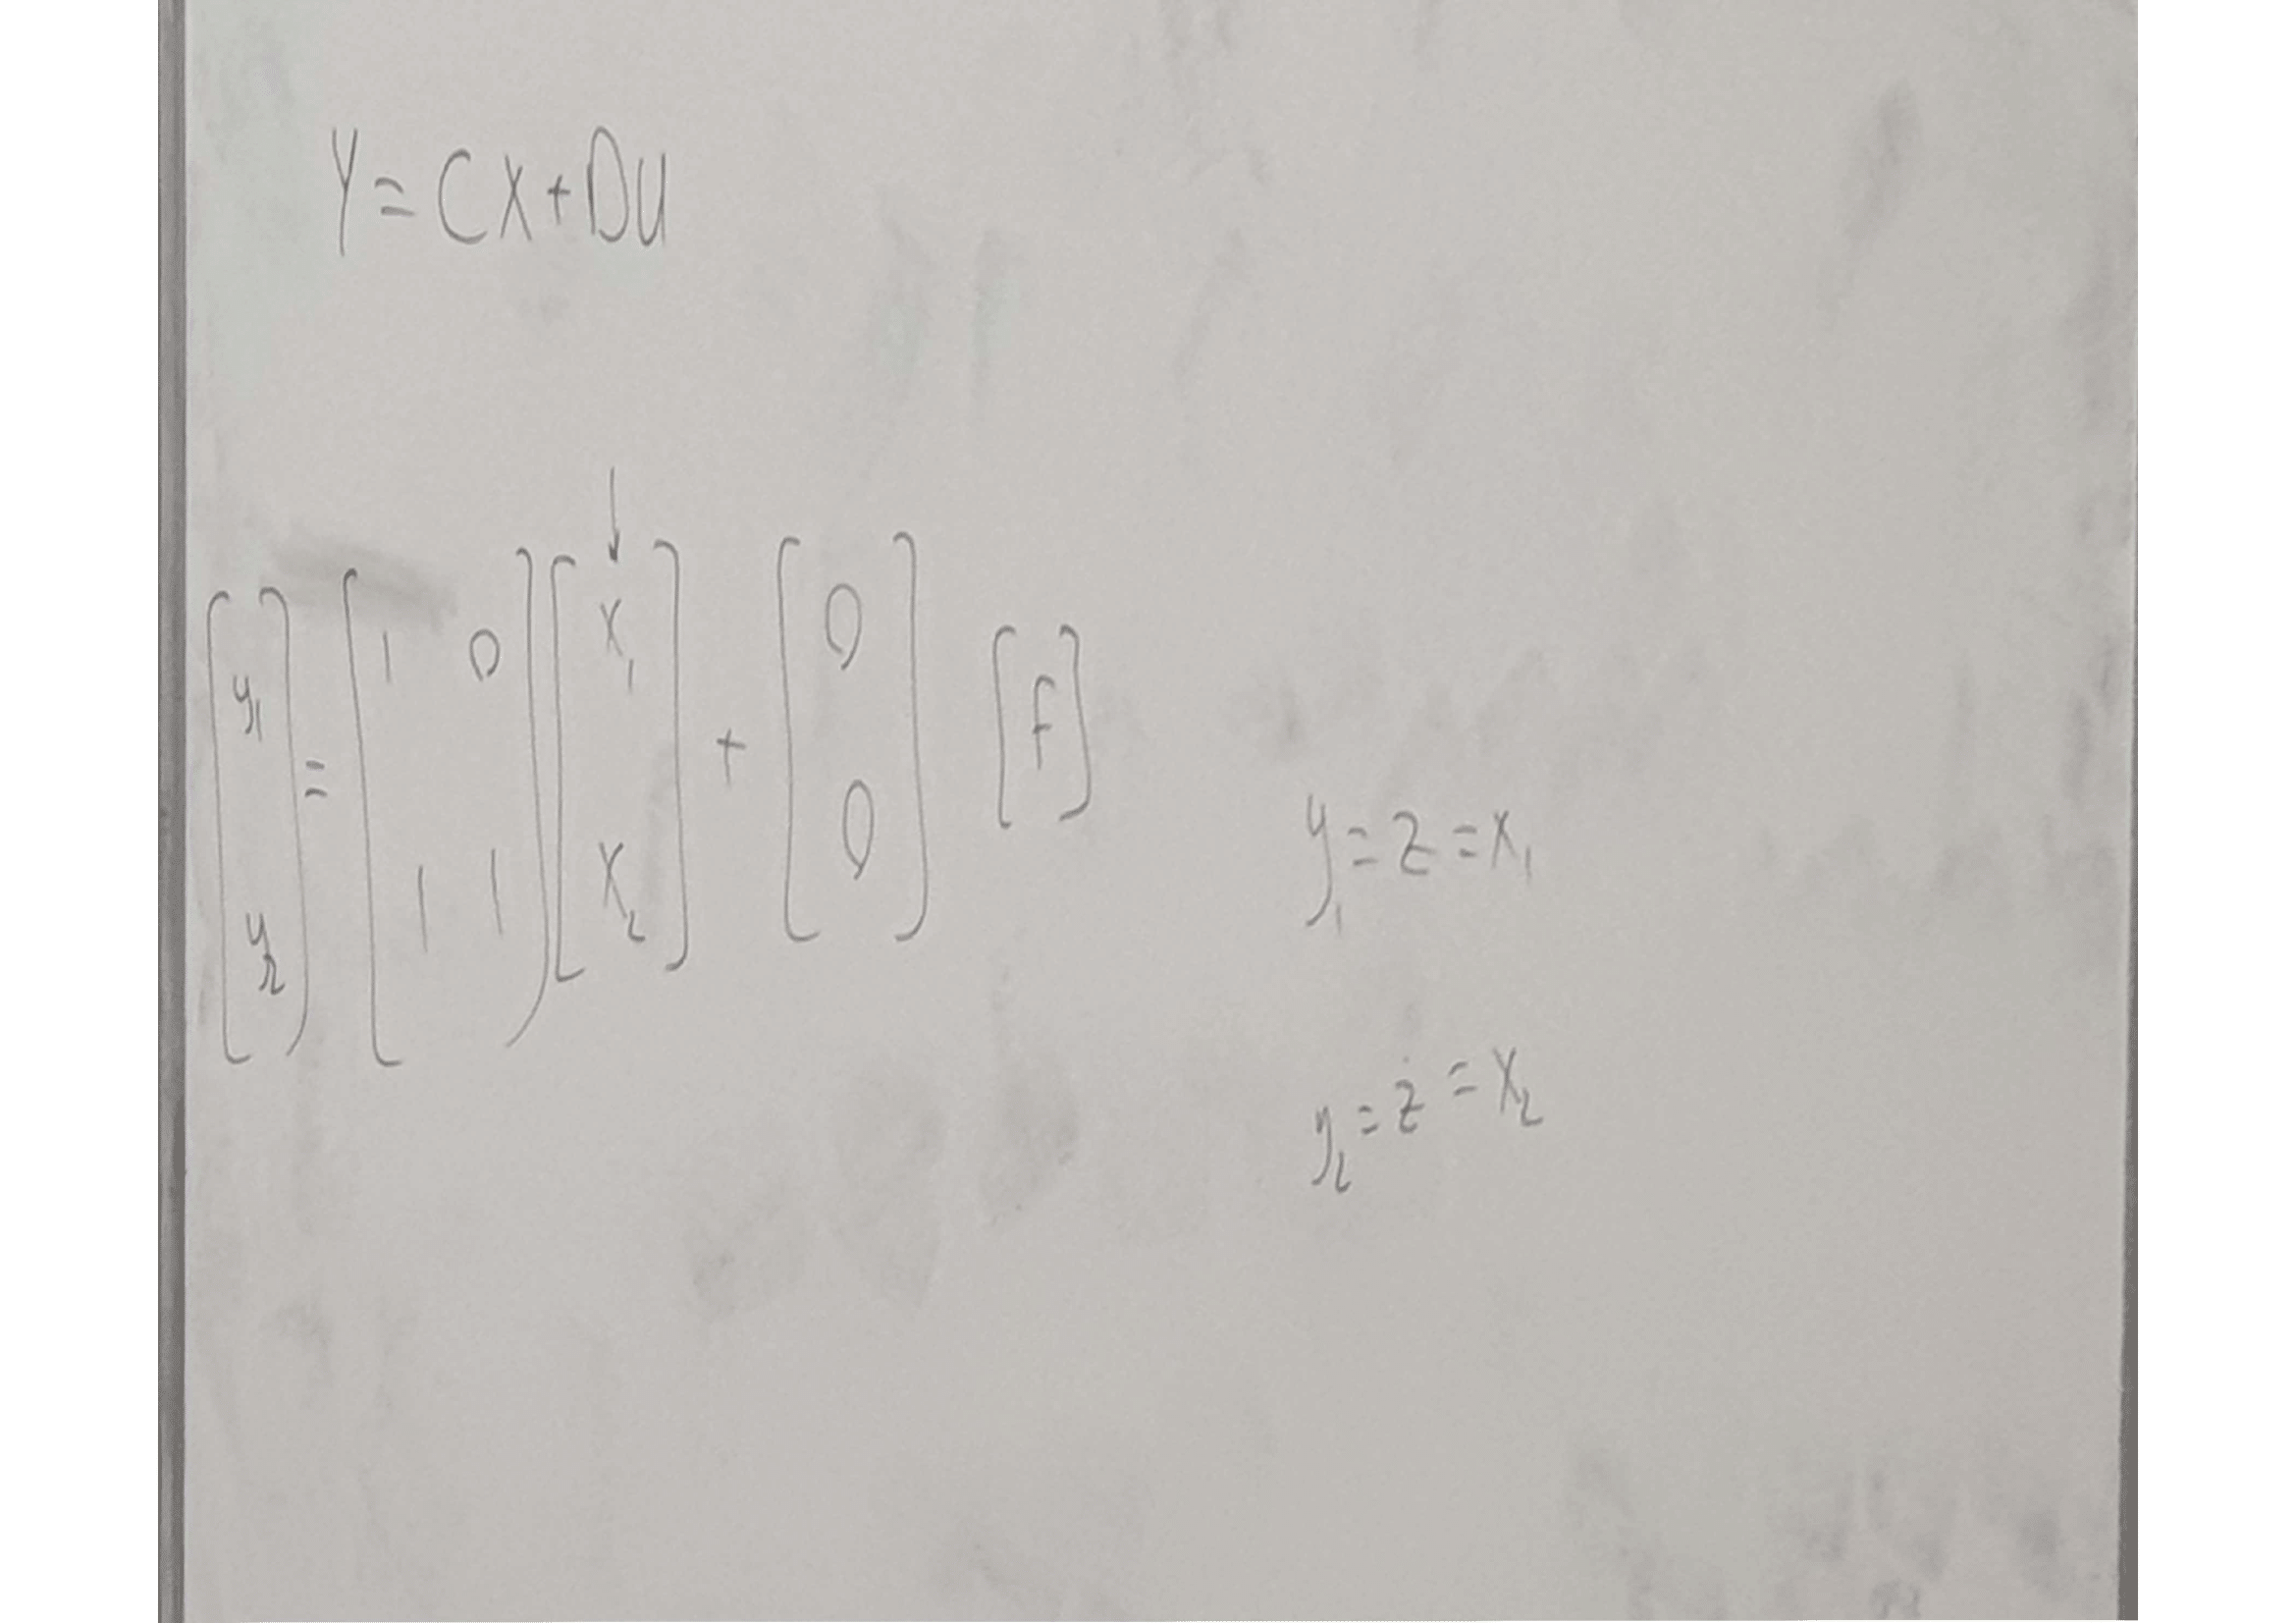 Y = CX + DU
[y₁ y₂] = [1 0 1 1] [x₁ x₂] + [0 0] [F]
y₁ = z = x₁
y₂ = ż = x₂